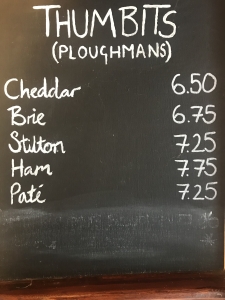 THUMBITS
(PLOUGHMANS)
Cheddar 6.50
Brie 6.75
Stilton 7.25
Ham 7.75
Paté 7.25